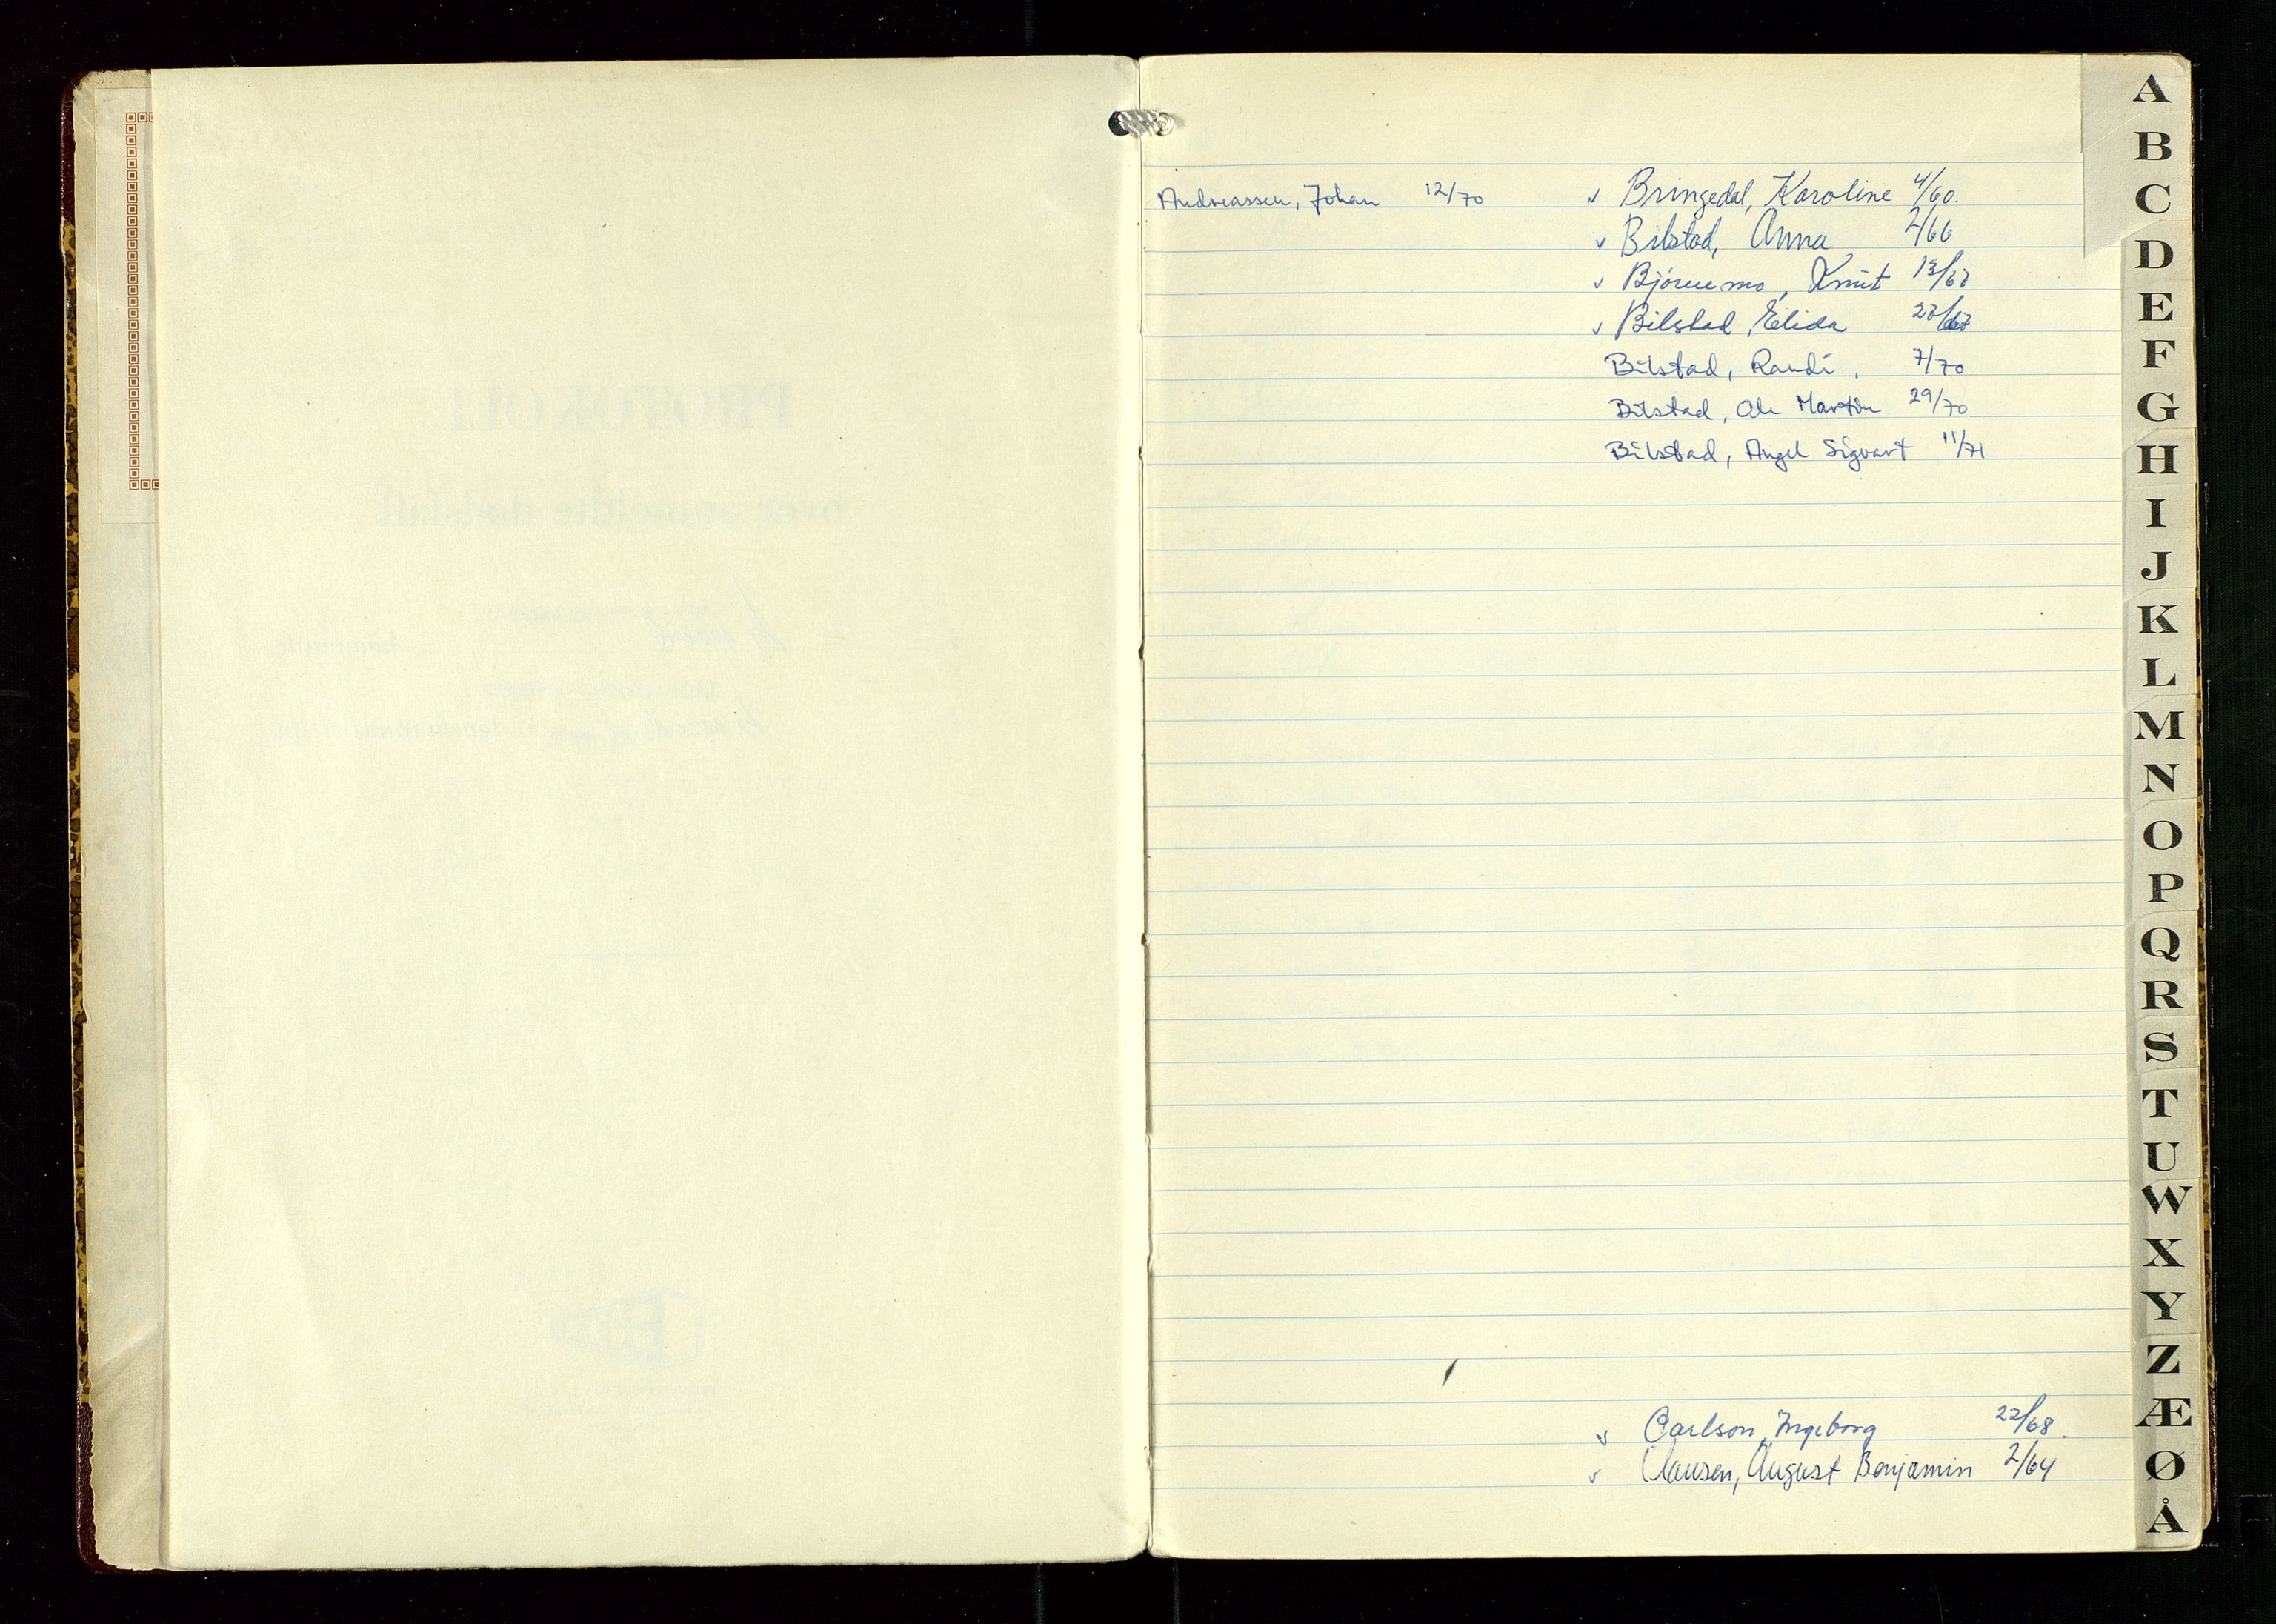 Andreassen, Johan 12/70
v Bringedal, Karoline 4/60.
v Bilstad, Anna 2/66
v Bjørnemo, Knut 13/67
v Bilstad, Elida 27/67
Bilstad, Randi. 7/70
Bilstad, Ole Martin 29/70
Bilstad, Angel Sigvart 11/71
v Carlson, Ingeborg 22/68.
v Clausen, August Benjamin 2/64
A
B
C
D
E
F
G
H
I
J
K
L
M
N
O
P
Q
R
S
T
U
W
X
Y
Z
Æ
Ø
Å